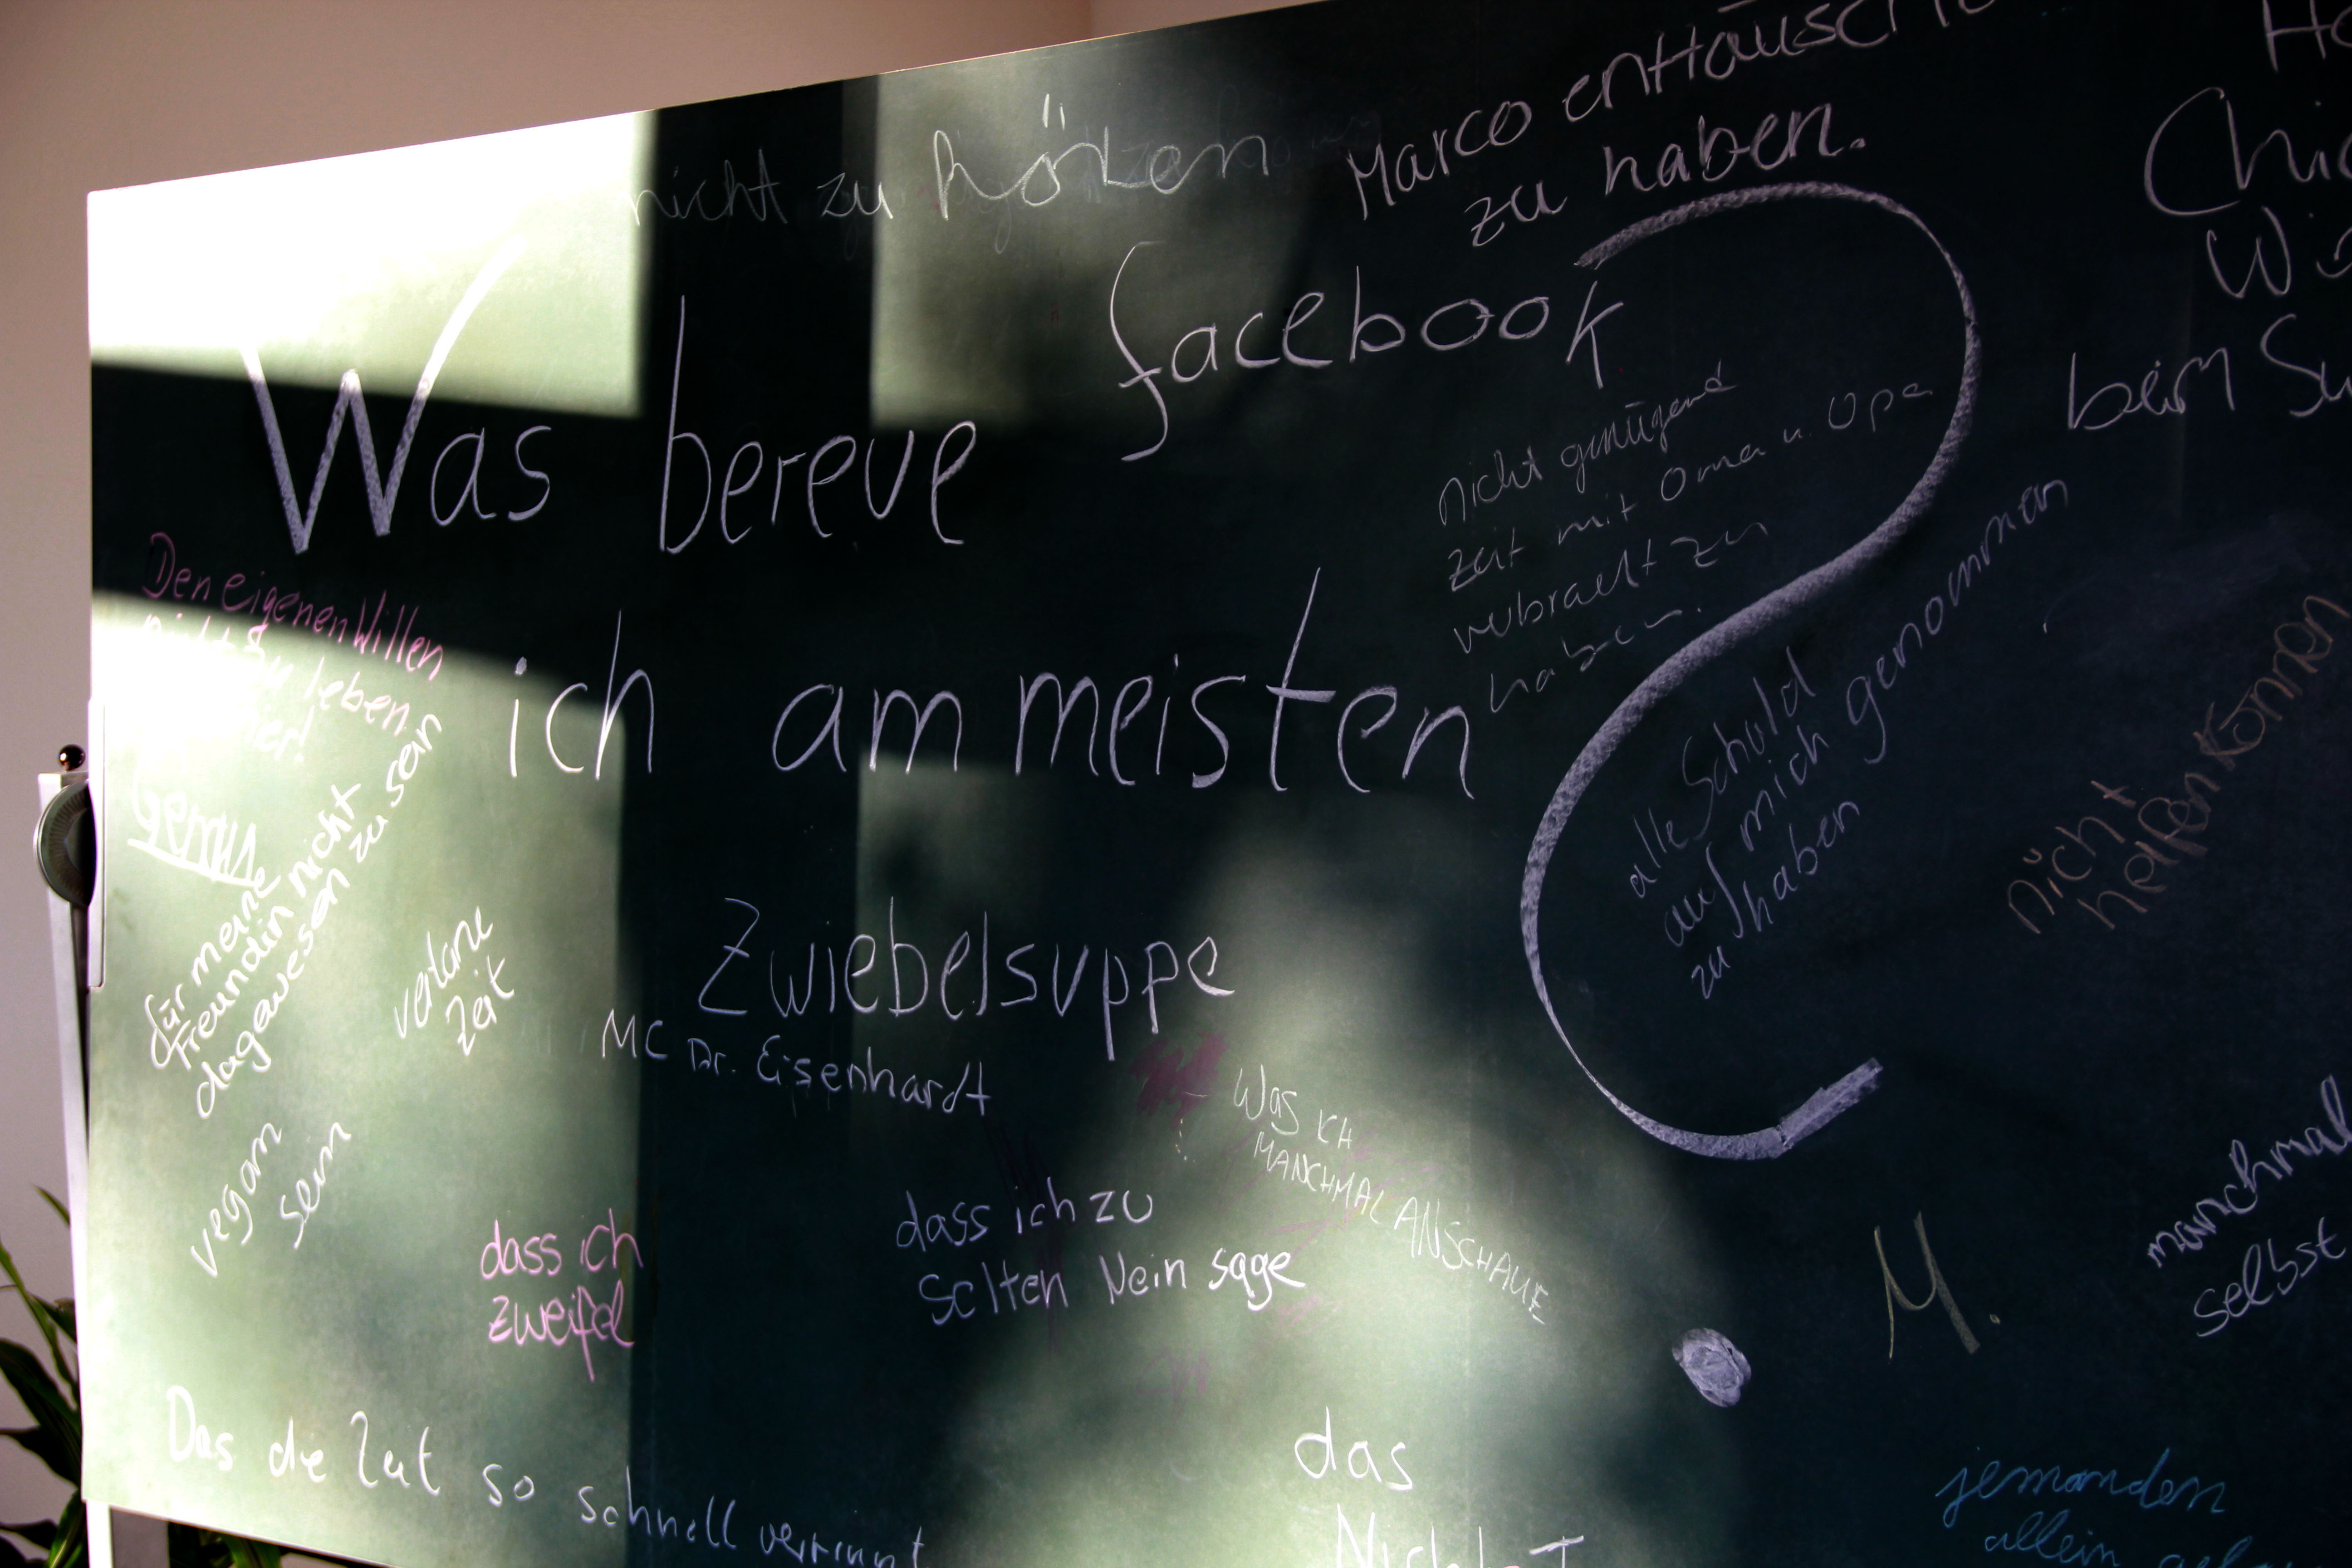 nicht zu
Marco
zu haben.
facebook
Was bereue
ich am meisten
?
nicht genügend
Zeit mit Oma u. Opa
verbracht zu
haben.
Den eigenen Willen
zu leben
für meine
Freundin nicht
dagewesen zu sein
Zeit
vegan
sein
alle Schuld
auf mich genommen
zu haben
nicht
helfen können
beim
Zwiebelsuppe
MC Dr. Eisenhardt
Was ich
MANCHMAL ANSCHAUE
dass ich zu
selten Nein sage
dass ich
zweifel
M.
manchmal
selbst
Das die Zeit so schnell verrinnt
das
jemanden
allein